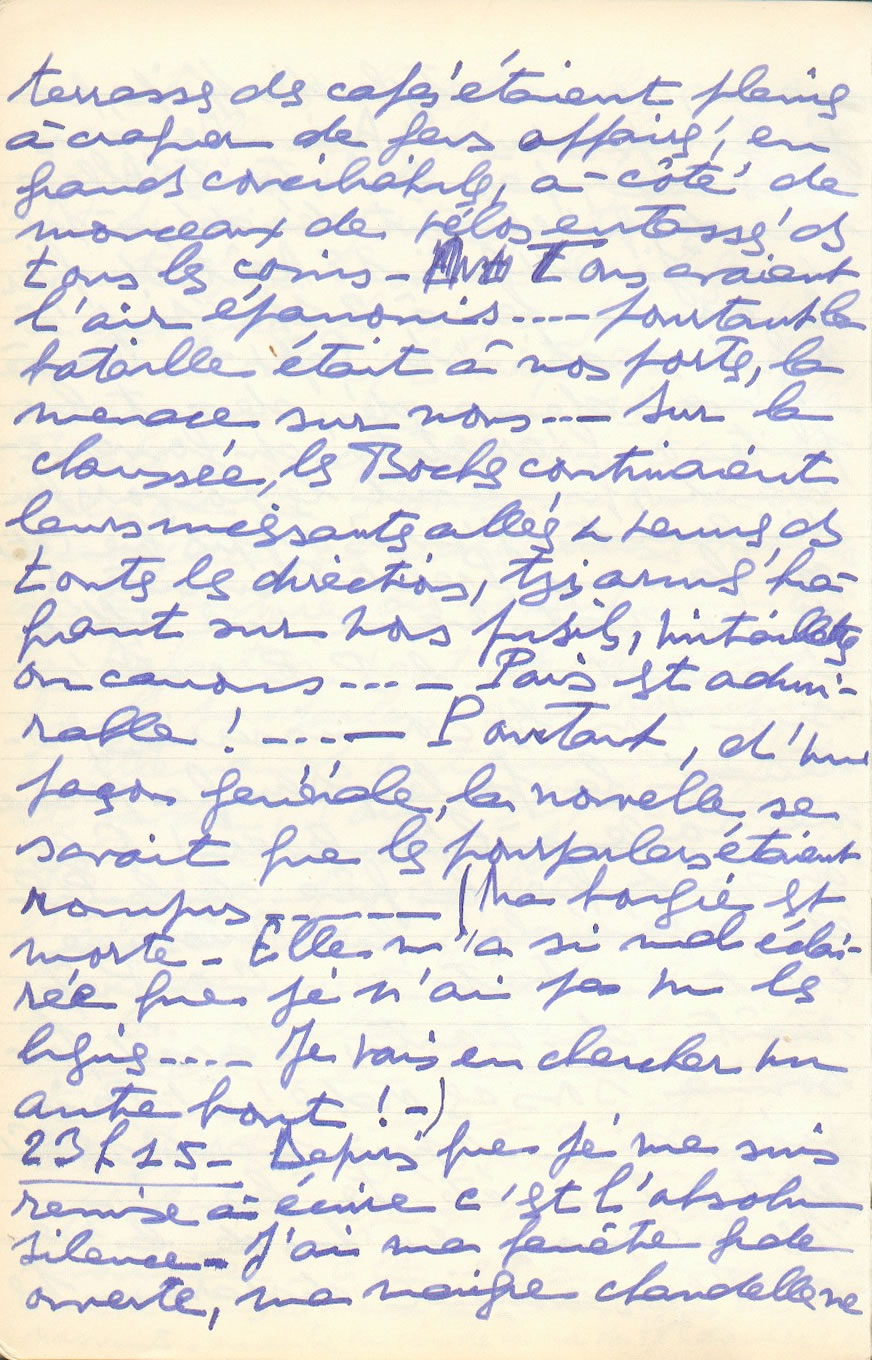 terrasses des cafés étaient pleines
à craquer de gens affairés, en
grands conciliabules, à-côté de
morceaux de vélos entassés ds
tous les coins - Tous avaient
l'air épanouis.... pourtant la
bataille était à nos portes, la
menace sur nous... Sur la
chaussée, les Boches continuaient
leurs incessantes allées & venues, ds
toutes les directions, tjs armés, bra-
quant sur nous fusils, mitraillettes
ou canons.... Paris est admi-
rable !..... Pourtant, d'une
façon générale, la nouvelle se
savait que les pourparlers étaient
rompus ...... (Ma bougie est
morte - Elle m'a si mal éclai-
rée que je n'ai pas vu les
lignes.... Je vais en chercher un
autre bout ! -)
23h15 - Depuis que je me suis
remise à écrire c'est l'absolu
silence - J'ai ma fenêtre gde
ouverte, ma maigre chandelle ne